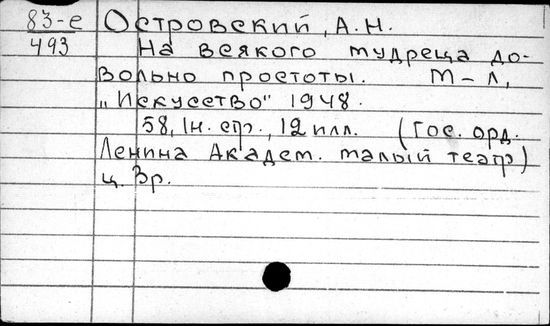 83-е Островский, А.Н.
493 На всякого мудреца до-
вольно простоты. М-Л,
„Искусство" 1948.
58, 1н. стр., 12 илл. (Гос. орд.
Ленина Академ. малый театр)
ц. 3р.